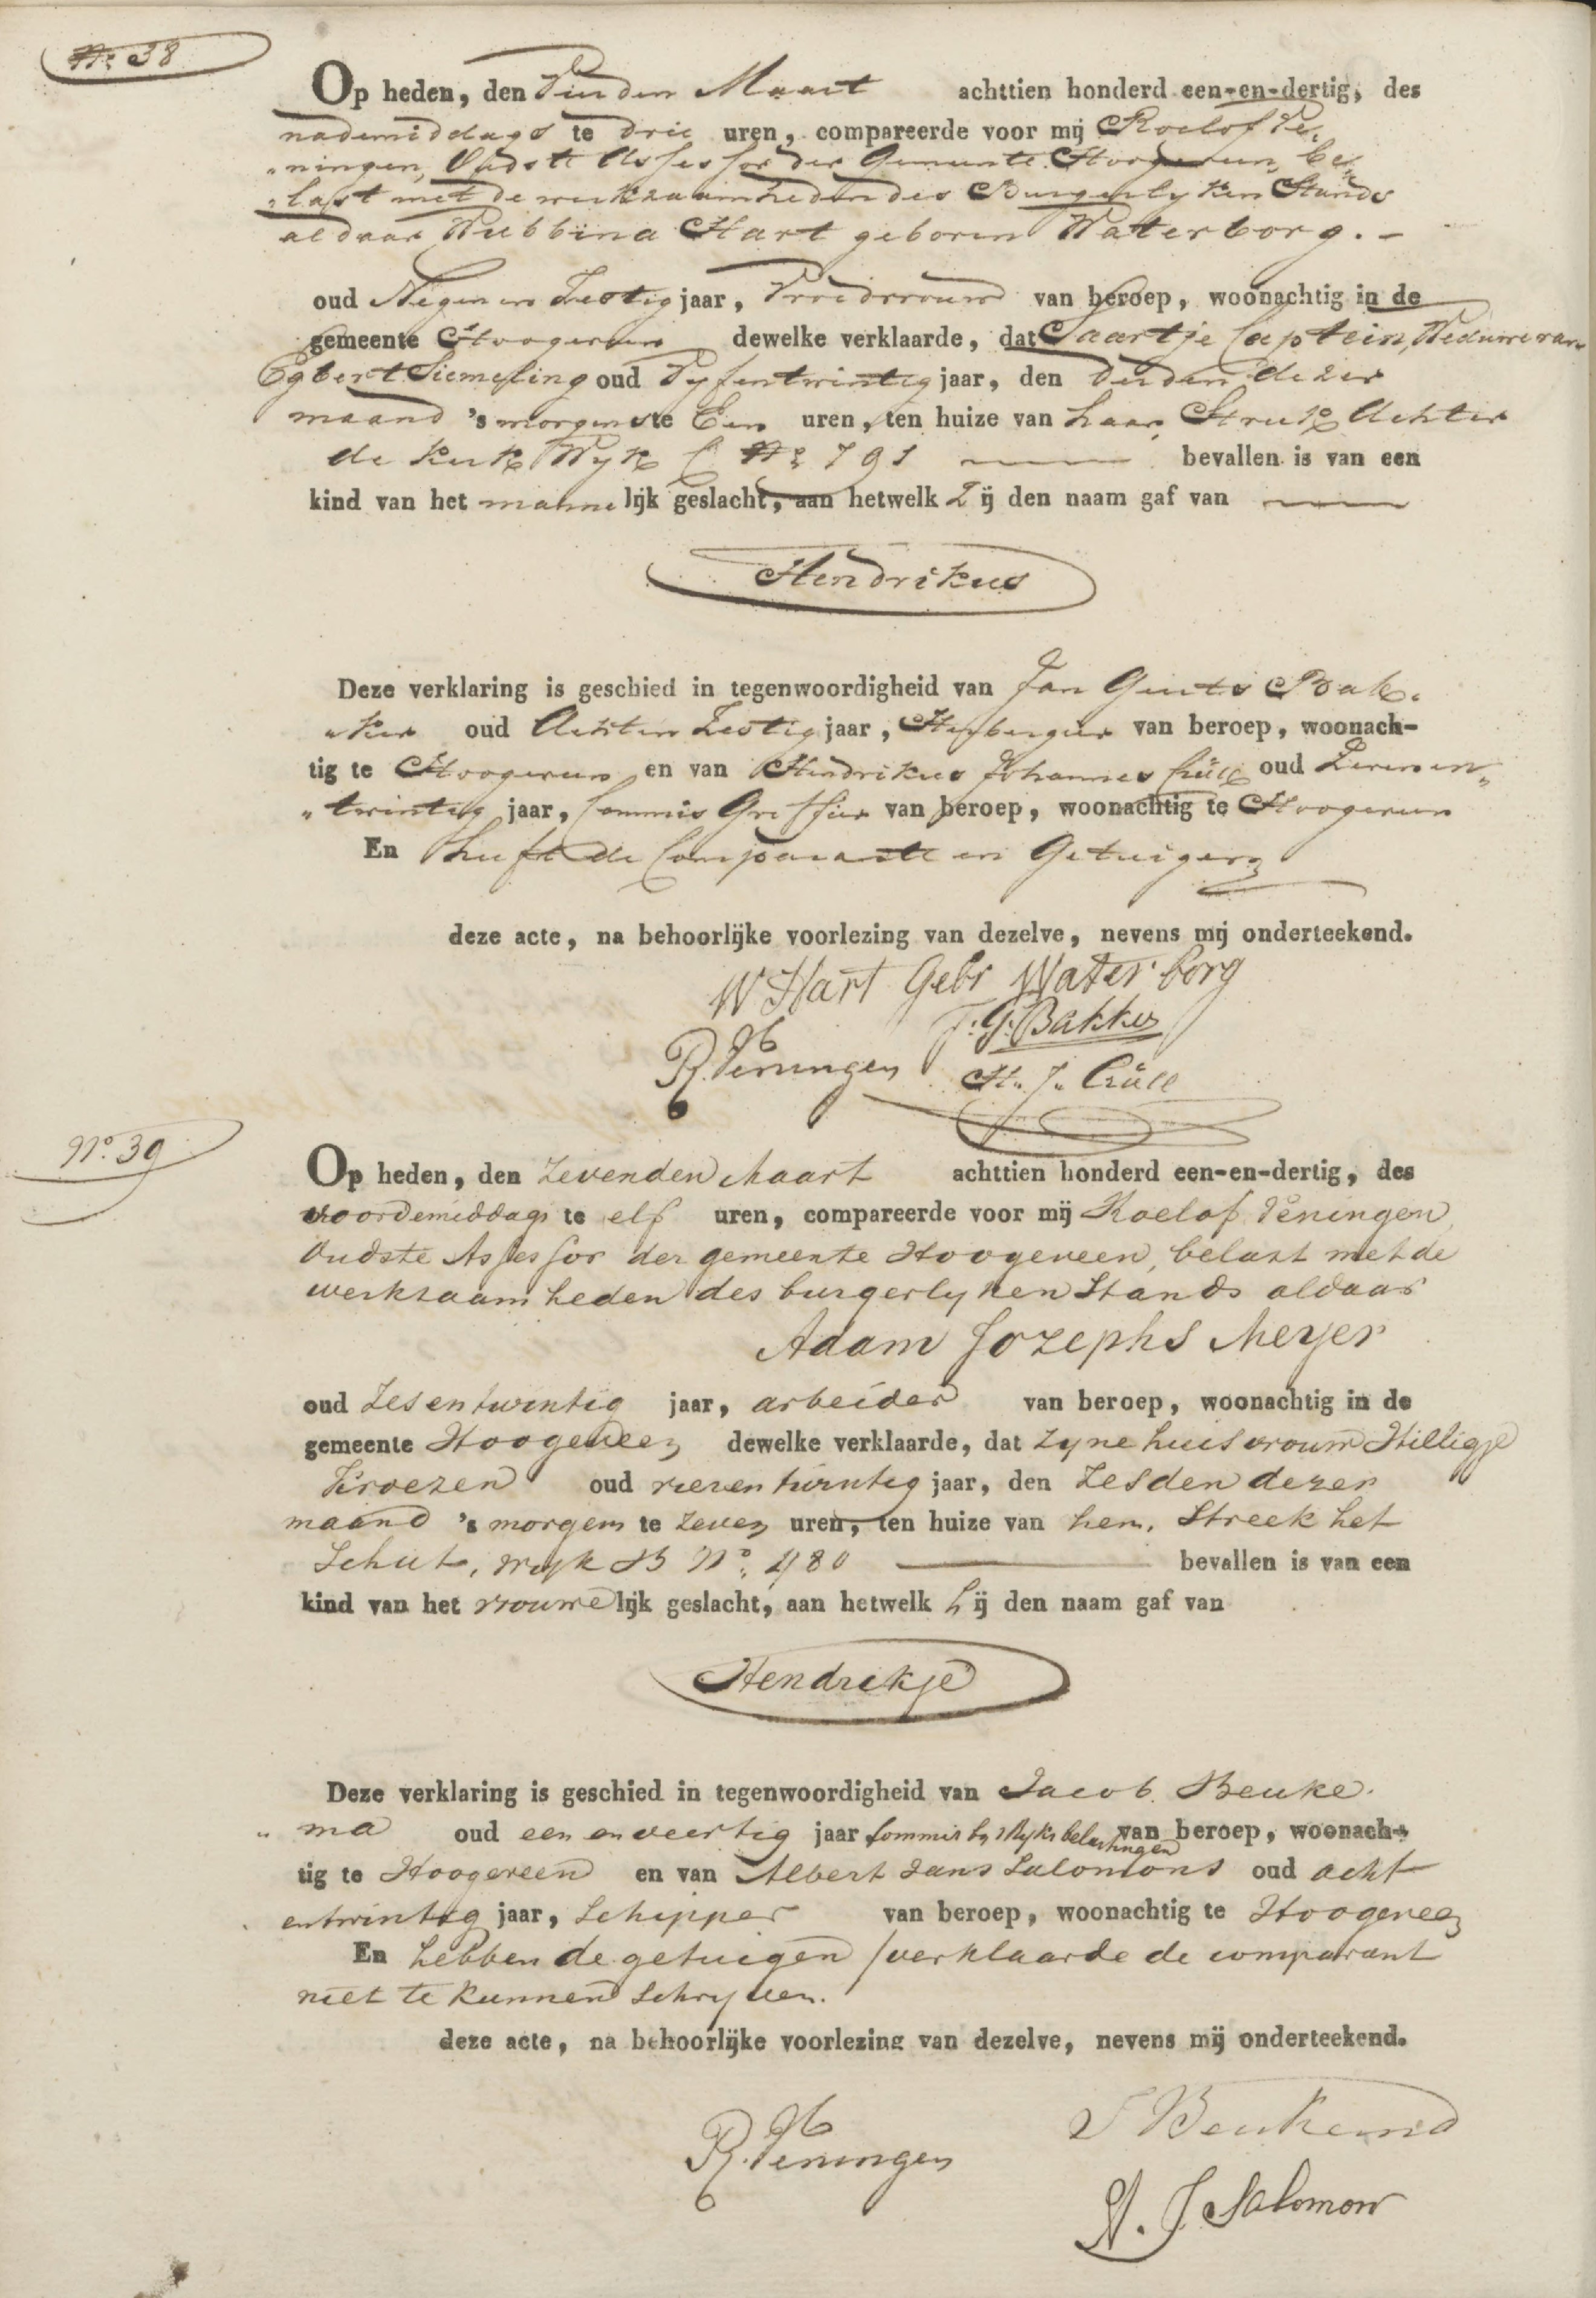 No. 38
Op heden, den Vierden Maart achttien honderd een-en-dertig, des
nademiddags te drie uren, compareerde voor mij Roelof Pe„
„ningen, Oudste Assessor der Gemeente Hoogeveen, be„
„last met de werkzaamheden des Burgerlyken Stands
aldaar Wubbina Hart geboren Waterborg. –
oud Negen en Zestig jaar, Vroedvrouw van beroep, woonachtig in de
gemeente Hoogeveen dewelke verklaarde, dat Saartje Captein, Weduwe van
Egbert Siemeling oud Vyfentwintig jaar, den Derden dezer
maand 's morgens te Een uren, ten huize van haar, Streek Achter
de Kerk Wyk C No. 791 bevallen is van een
kind van het mannelijk geslacht, aan hetwelk Zij den naam gaf van
Hendrikus
Deze verklaring is geschied in tegenwoordigheid van Jan Geerts Bak„
„ker oud Achten Zestig jaar, Herbergier van beroep, woonach-
tig te Hoogeveen en van Hendrikus Johannes Crüll oud Zevenen„
„twintig jaar, Commis Griffier van beroep, woonachtig te Hoogeveen
En heeft de Comparante en Getuigen
deze acte, na behoorlijke voorlezing van dezelve, nevens mij onderteekend.
W Hart Gebr Waterborg
J. G. Bakker
R. Peningen H. J. Crüll
No. 39
Op heden, den Zevenden Maart achttien honderd een-en-dertig, des
voordemiddags te elf uren, compareerde voor mij Roelof Peningen,
Oudste Assessor der gemeente Hoogeveen, belast met de
werkzaamheden des burgerlyken Stands aldaar
Adam Jozephs Meyer
oud Zesentwintig jaar, arbeider van beroep, woonachtig in de
gemeente Hoogeveen dewelke verklaarde, dat zyne huisvrouw Hilligje
Kroezen oud vierentwintig jaar, den Zesden dezer
maand 's morgens te Zeven uren, ten huize van hem, Streek het
Schut, wyk B No. 480 bevallen is van een
kind van het vrouwelijk geslacht, aan hetwelk hij den naam gaf van
Hendrikje
Deze verklaring is geschied in tegenwoordigheid van Jacob Beuke„
„ma oud een en veertig jaar commis by 's Ryks belastingen van beroep, woonach-
tig te Hoogeveen en van Albert Jans Salomons oud acht
entwintig jaar, Schipper van beroep, woonachtig te Hoogeveen
En hebben de getuigen /verklaarde de comparant
niet te kunnen Schryven.
deze acte, na behoorlijke voorlezing van dezelve, nevens mij onderteekend.
J Beukema
R. Peningen
A. J. Salomons